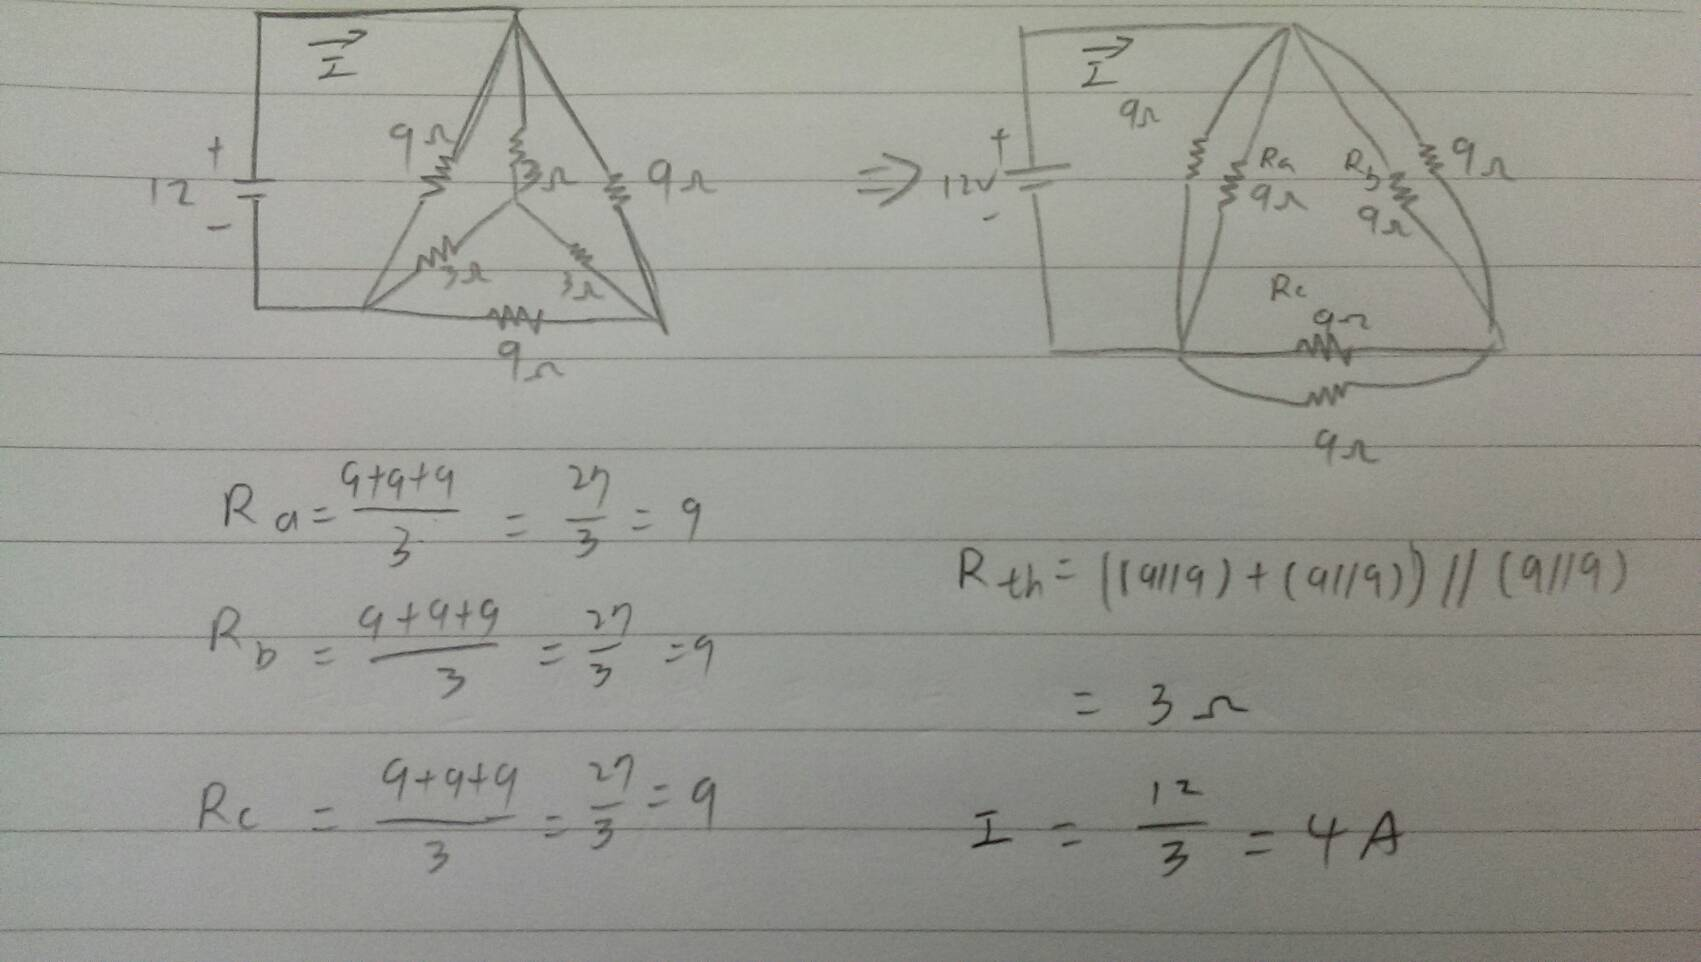 I
9Ω
+
12
-
3Ω
9Ω
3Ω
3Ω
9Ω
⇒
I
9Ω
+
12V
-
Ra
9Ω
Rb
9Ω
9Ω
Rc
9Ω
9Ω
Ra = 9+9+9/3 = 27/3 = 9
Rb = 9+9+9/3 = 27/3 = 9
Rc = 9+9+9/3 = 27/3 = 9
Rth = ((9//9) + (9//9)) // (9//9)
= 3Ω
I = 12/3 = 4A